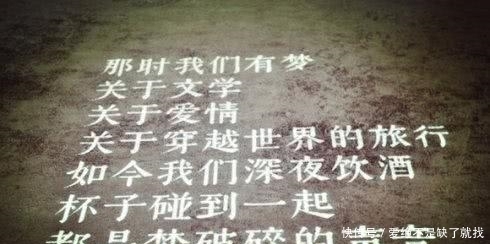 那时我们有梦
关于文学
关于爱情
关于穿越世界的旅行
如今我们深夜饮酒
杯子碰到一起
都是梦破碎的
快传号 / 爱绝不是缺了就找